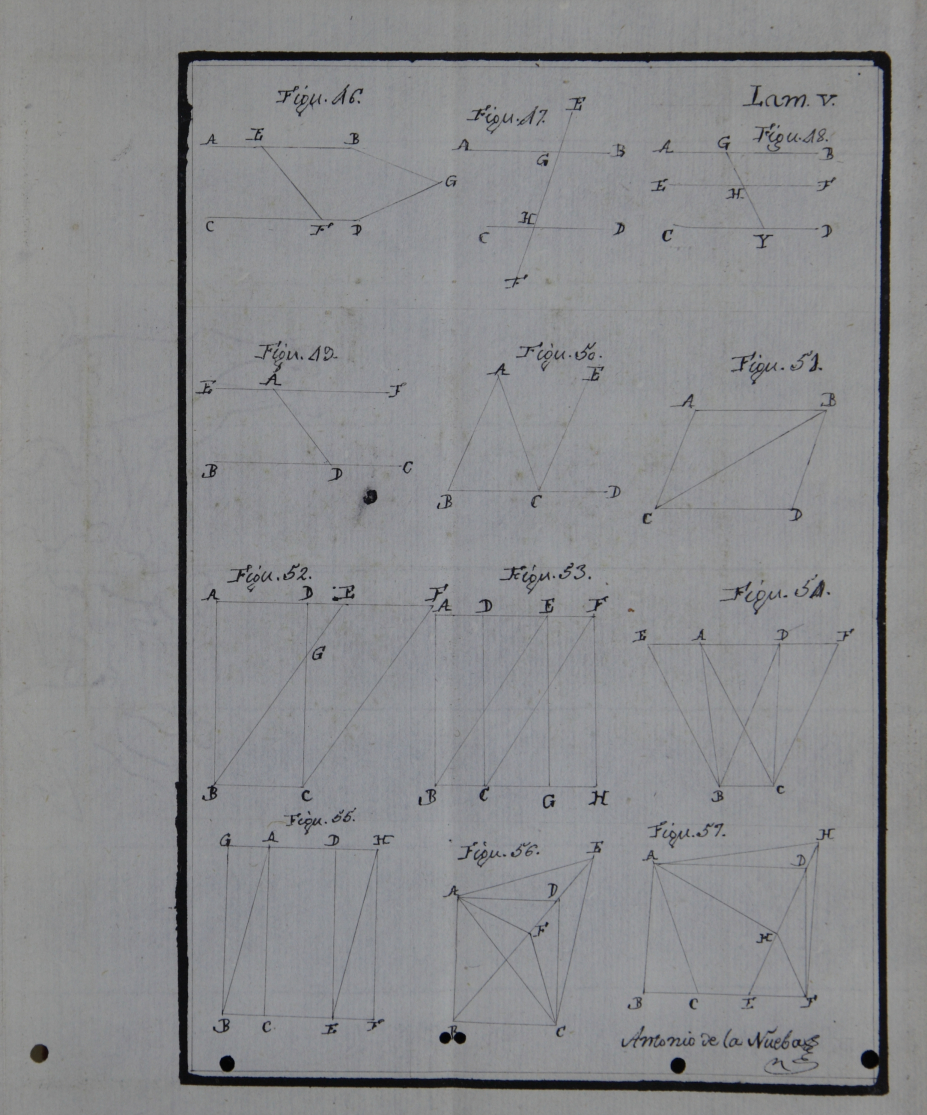 Lam. V.
Figu. 46.
A E B
G
C F D
Figu. 47.
E
A G B
H
C D
F
Figu. 48.
A G B
E H F
C Y D
Figu. 49.
E A F
B D C
Figu. 50.
A E
B C D
Figu. 51.
A B
C D
Figu. 52.
A D E F
G
B C
Figu. 53.
A D E F
B C G H
Figu. 54.
E A D F
B C
Figu. 55.
G A D H
B C E F
Figu. 56.
E
A D
F
B C
Figu. 57.
H
A D
H
B C E F
Antonio de la Nueba